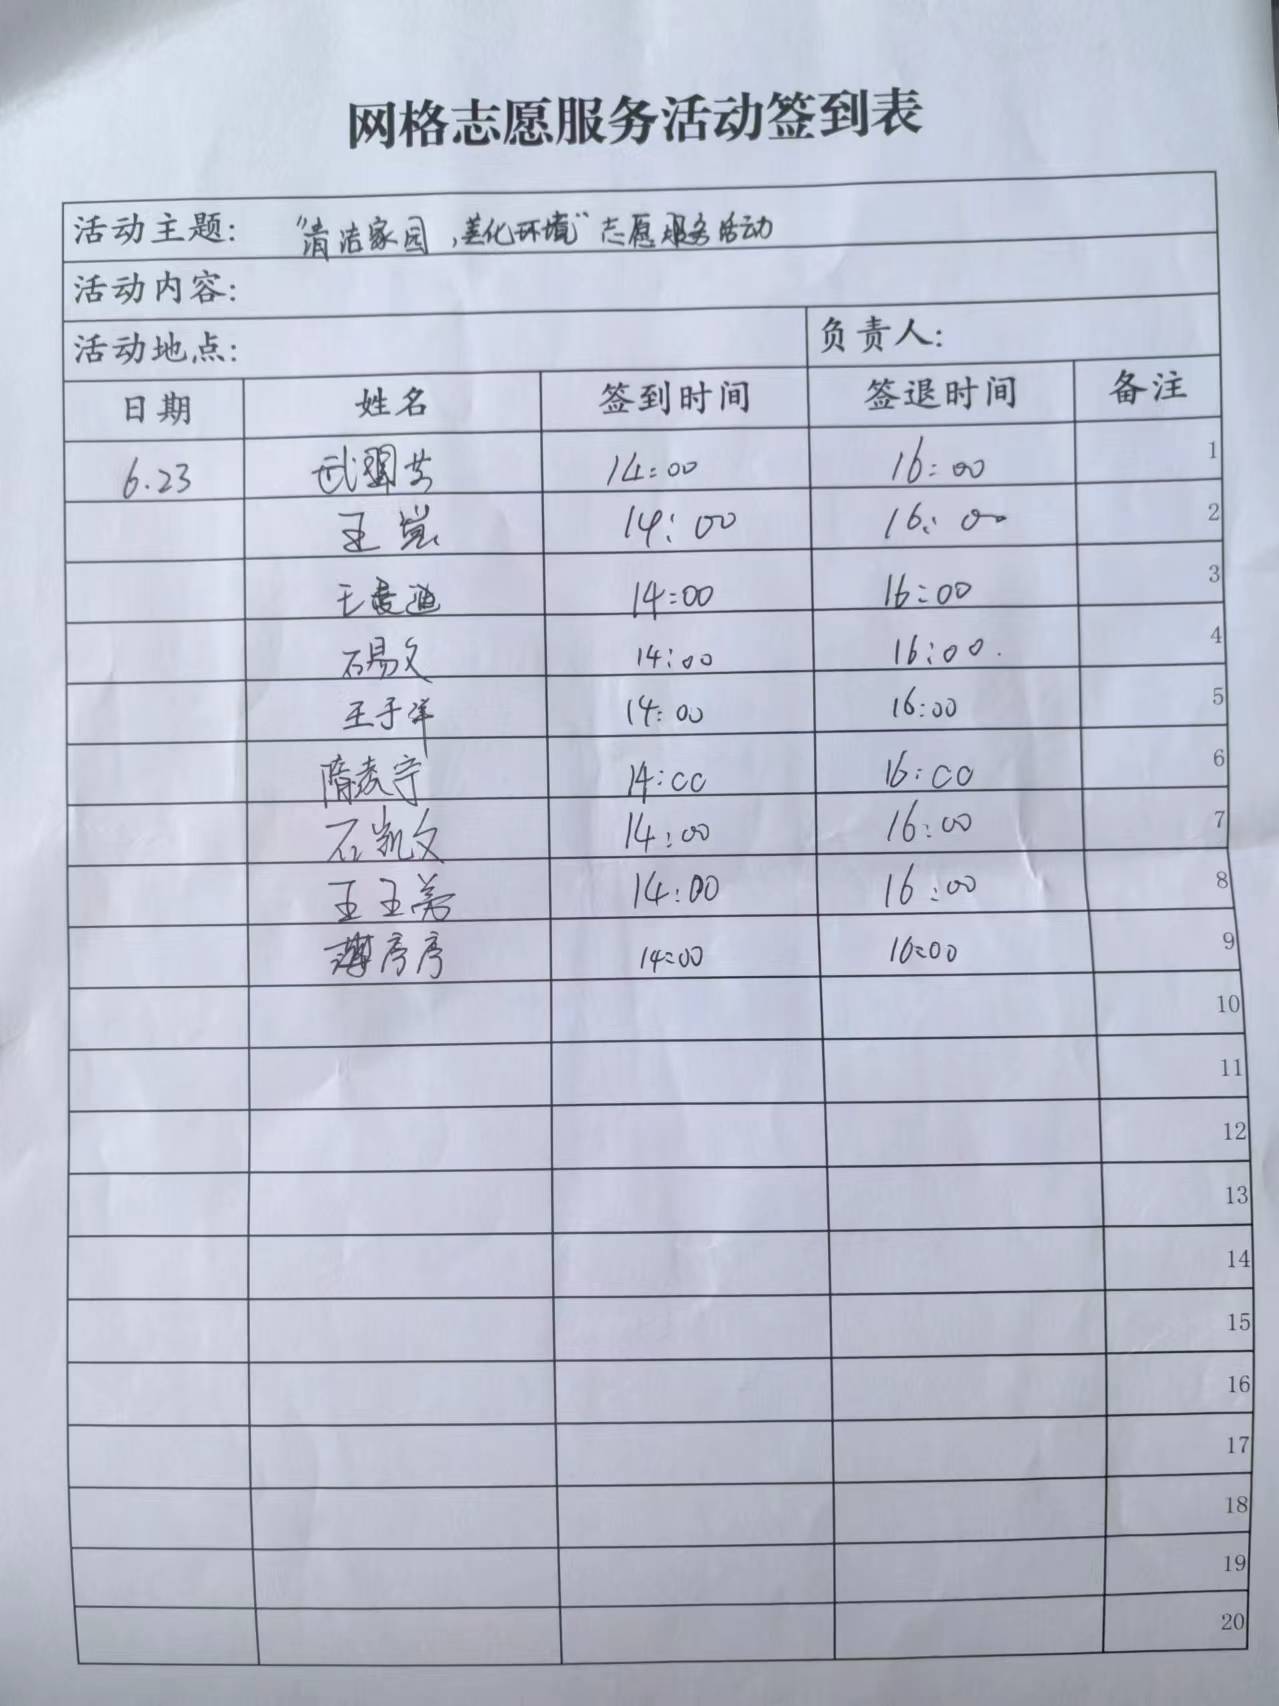 网格志愿服务活动签到表
活动主题: "清洁家园,美化环境"志愿服务活动
活动内容:
活动地点: 负责人:
日期 姓名 签到时间 签退时间 备注
6.23 武 14:00 16:00 1
王 14:00 16:00 2
王 14:00 16:00 3
石易文 14:00 16:00. 4
王子洋 14:00 16:00 5
隋 宁 14:00 16:00 6
石凯文 14:00 16:00 7
王王美 14:00 16:00 8
薄序序 14:00 16:00 9
10
11
12
13
14
15
16
17
18
19
20